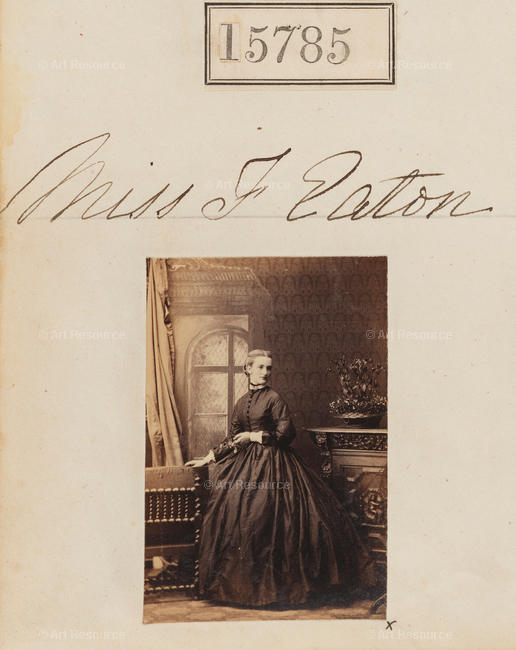 15785
© Art Resource © Art Resource
Miss F Eaton
© Art Resource
© Art Resource © Art Resource
© Art Resource
x
© Art Resource © Art Resource